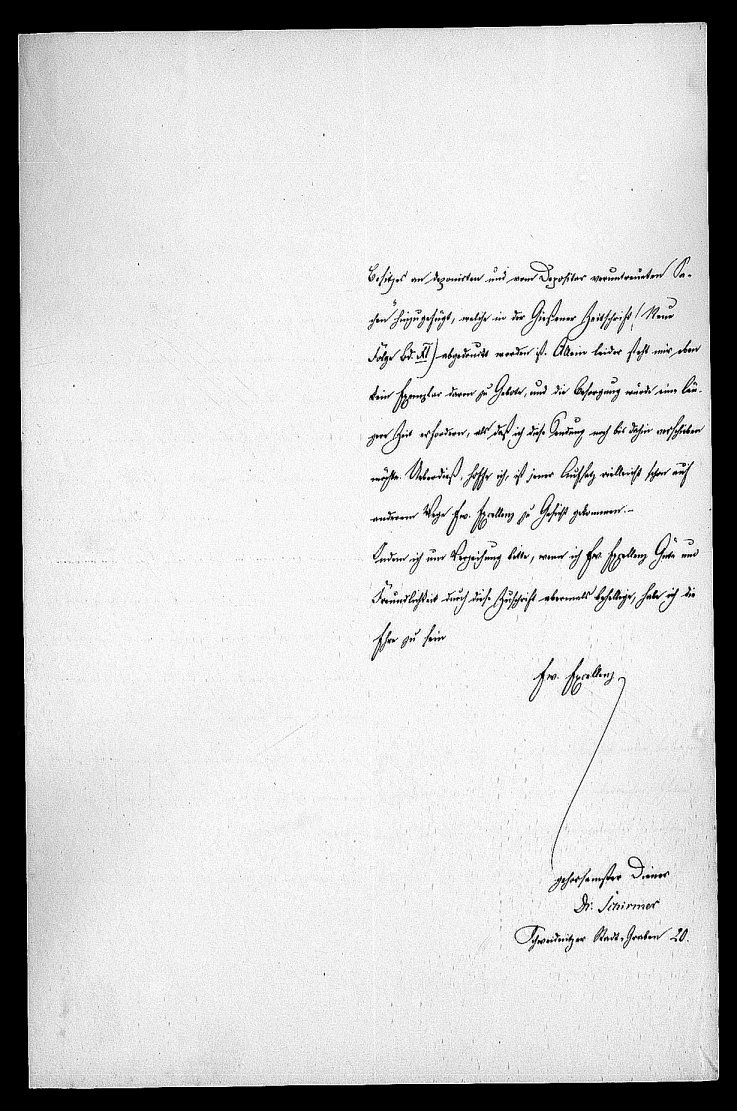 Besitzes an deponirten und vom Depositar veruntreuten Sa-
chen" hinzugefügt, welche in der Gießener Zeitschrift (Neue
Folge Bd. XI) abgedruckt worden ist. Allein leider steht mir eben
kein Exemplar davon zu Gebote, und die Besorgung würde eine län-
gere Zeit erfordern, als daß ich diese Sendung noch bis dahin verschieben
möchte. Ueberdieß, hoffe ich, ist jener Aufsatz vielleicht schon auf
anderem Wege Ew. Excellenz zu Gesicht gekommen. –
Indem ich um Verzeihung bitte, wenn ich Ew. Excellenz Güte und
Freundlichkeit durch diese Zuschrift abermals behellige, habe ich die
Ehre zu sein
Ew. Excellenz
gehorsamster Diener
Dr. Schirmer
Schweidnitzer Stadt-Graben 20.